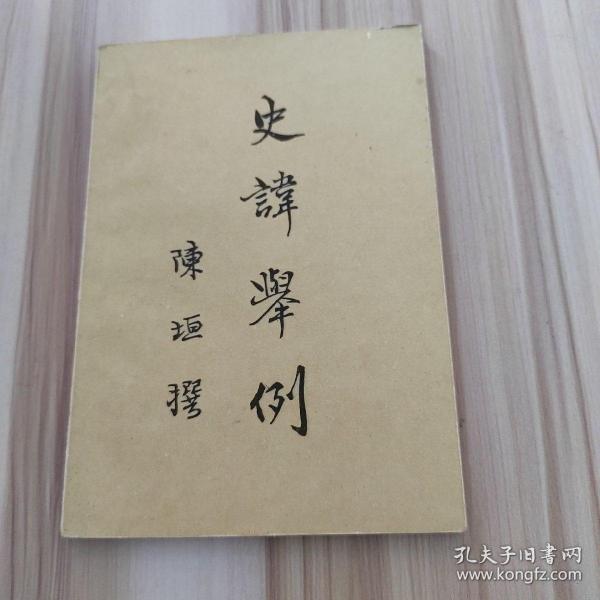 史諱舉例
陳垣撰
孔夫子旧书网
www.kongfz.com